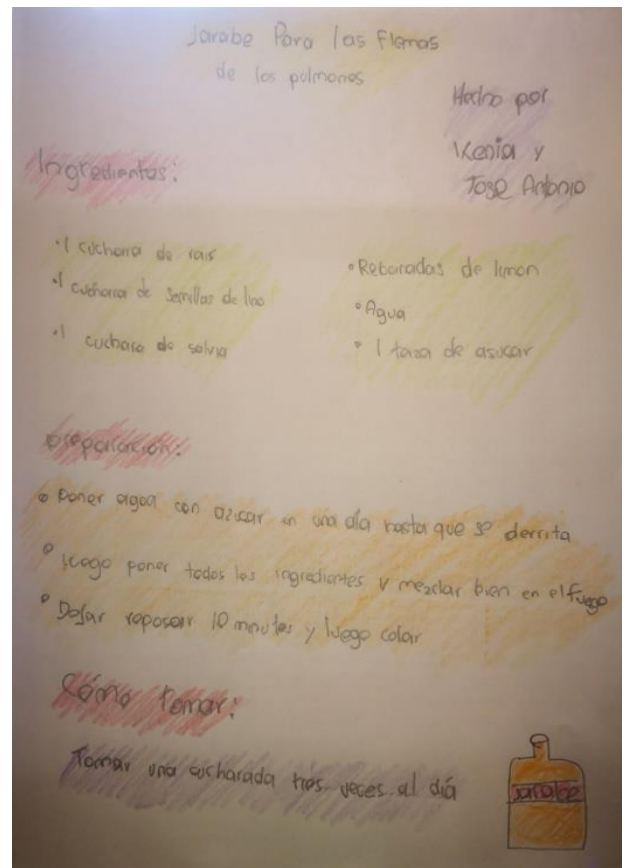 Jarabe Para las Flemas
de los pulmones
Hecho por
Kenia y
Jose Antonio
Ingredientes:
• 1 cuchara de rais
• 1 cuchara de semillas de lino
• 1 cuchara de salvia
• Reboradas de limon
• Agua
• 1 taza de asucar
preparación:
• Poner agua con azucar en una olla hasta que se derrita
• luego poner todos los ingredientes y mezclar bien en el fuego
• Dejar reposar 10 minutos y luego colar
Cómo Tomar:
Tomar una cucharada tres veces al día
Jarabe